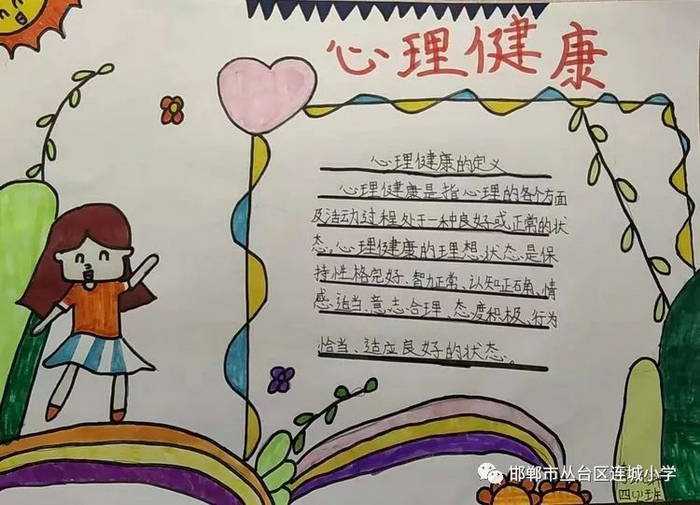 心理健康
心理健康的定义
心理健康是指心理的各个方面
及活动过程处于一种良好或正常的状
态。心理健康的理想状态是保
持性格完好、智力正常、认知正确、情
感适当、意志合理、态度积极、行为
恰当、适应良好的状态。
邯郸市丛台区连城小学